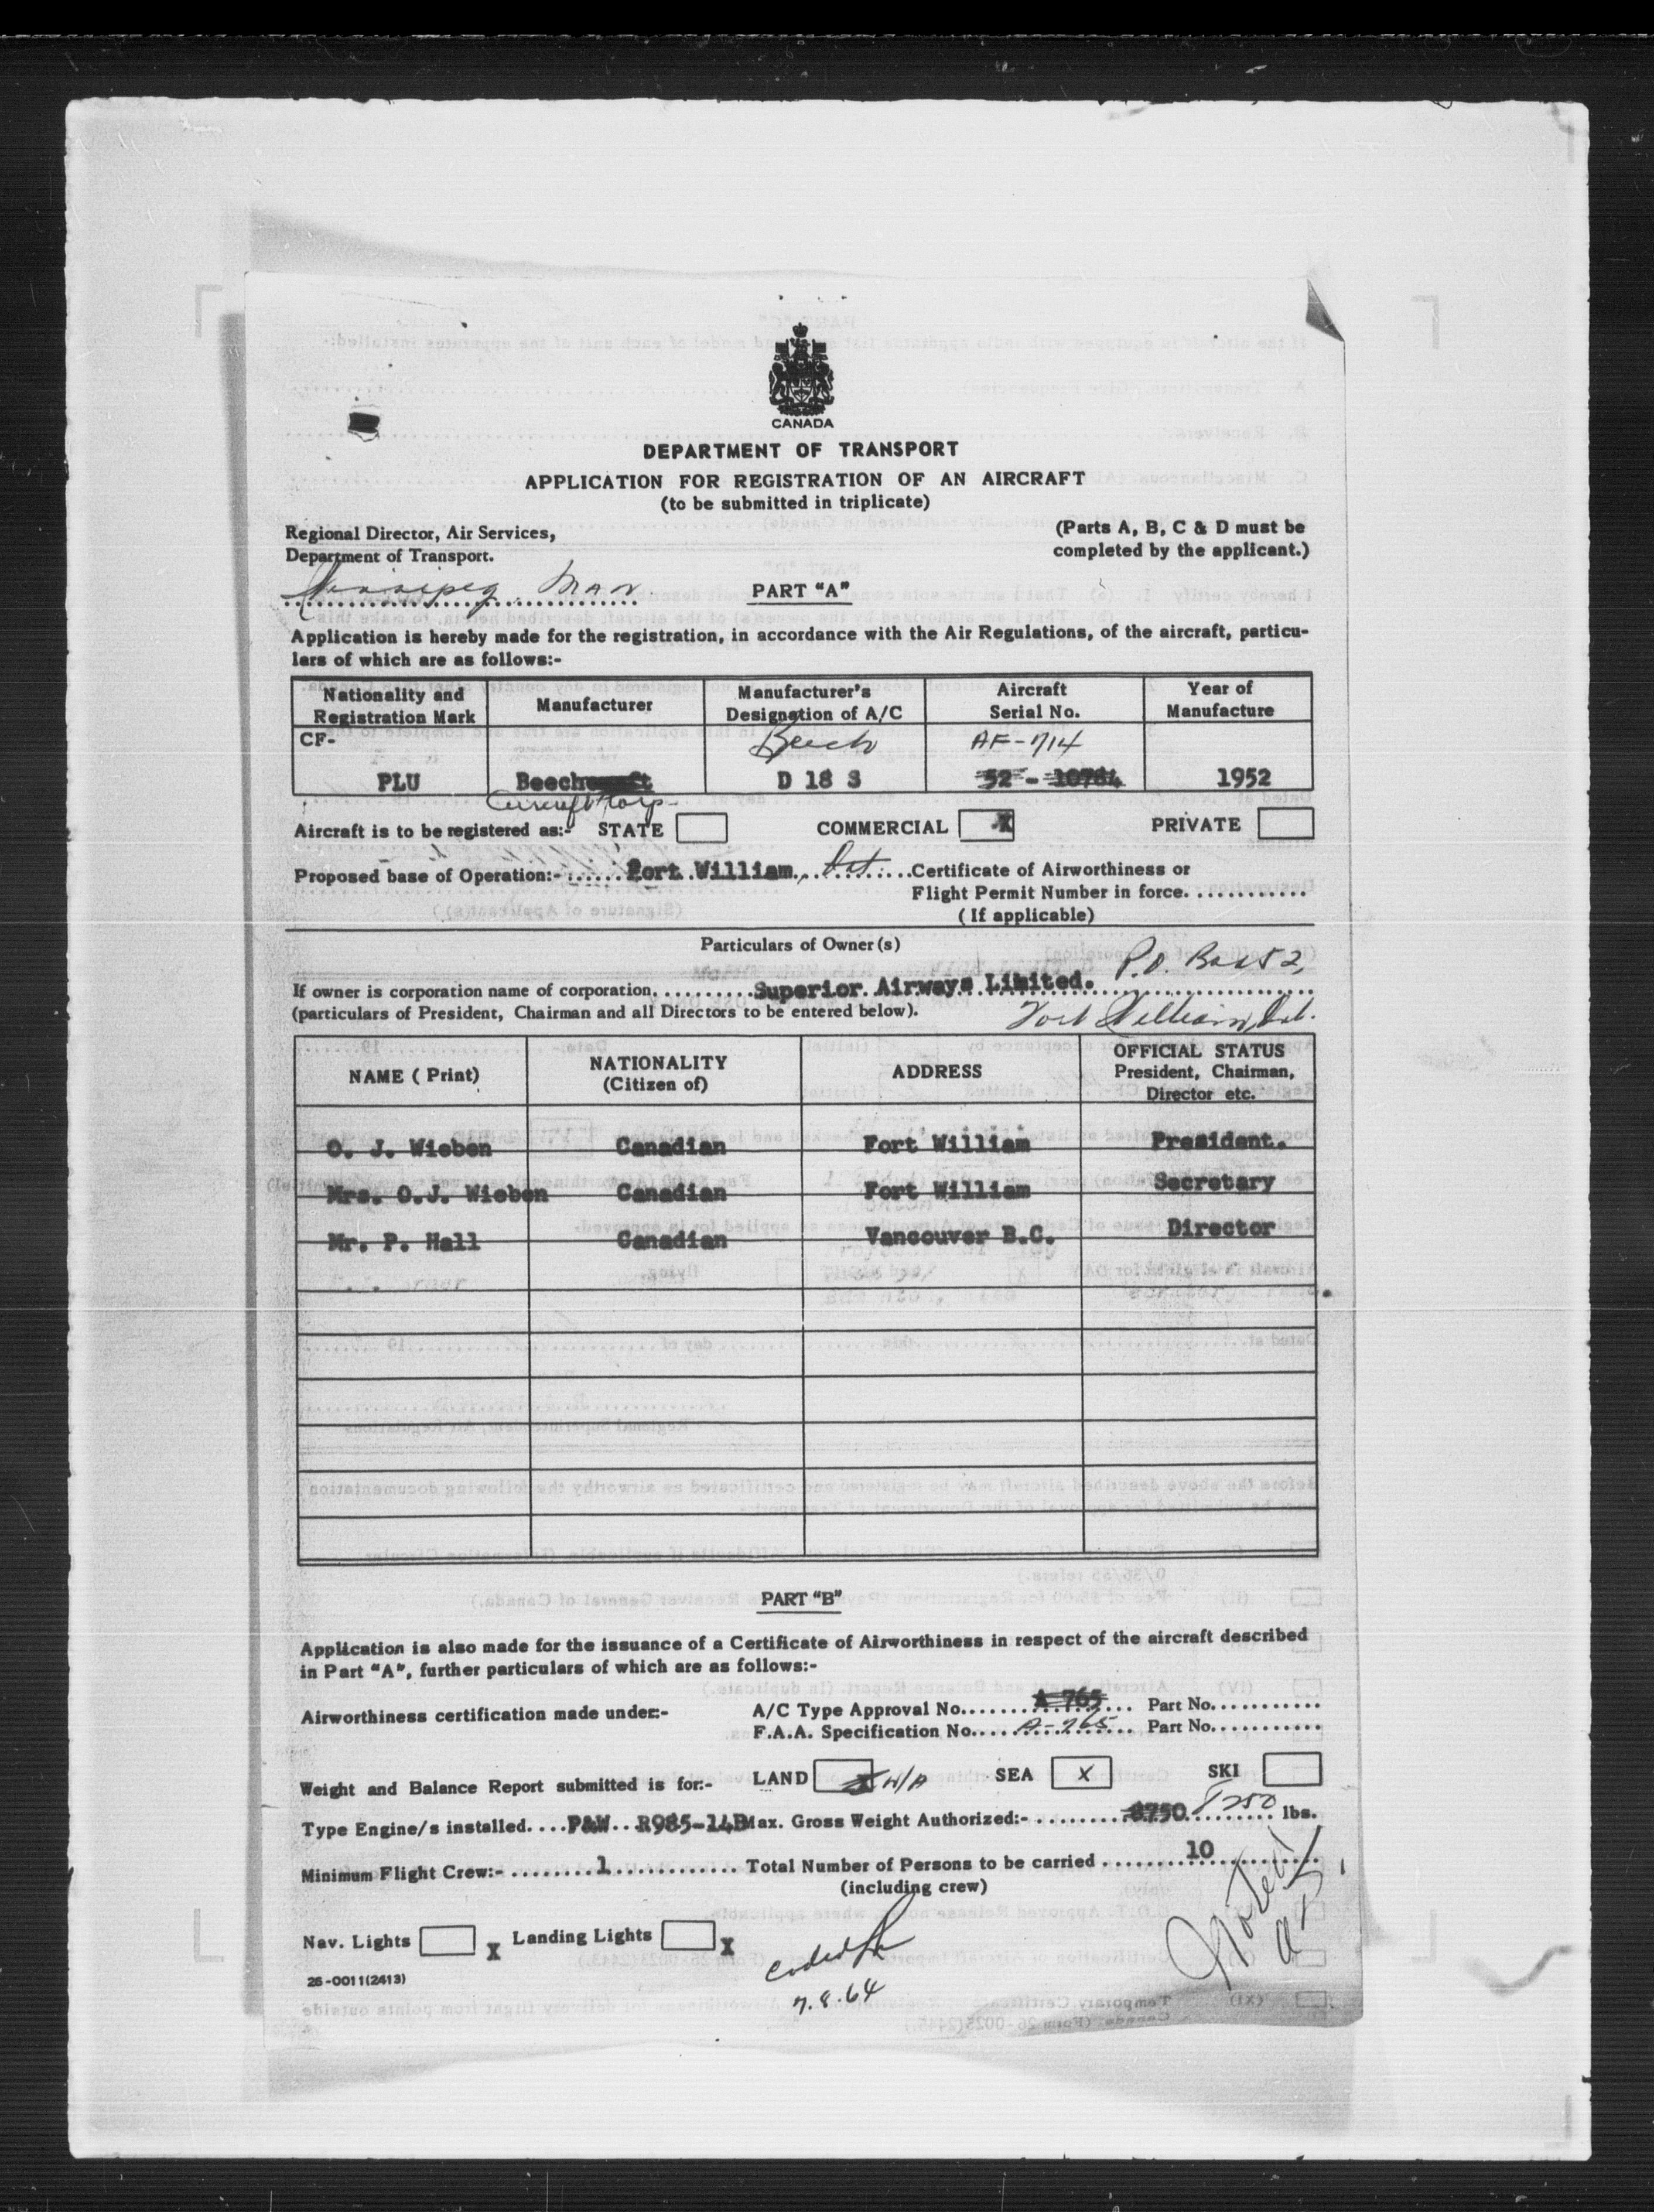 CANADA
DEPARTMENT OF TRANSPORT
APPLICATION FOR REGISTRATION OF AN AIRCRAFT
(to be submitted in triplicate)
Regional Director, Air Services,
Department of Transport.
(Parts A, B, C & D must be
completed by the applicant.)
Winnipeg, Man.
PART "A"
Application is hereby made for the registration, in accordance with the Air Regulations, of the aircraft, particu-
lars of which are as follows:-
Nationality and Registration Mark Manufacturer Manufacturer's Designation of A/C Aircraft Serial No. Year of Manufacture
CF- Beech AF-714
PLU Beechcraft D 18 S 52 - 10784 1952
Aircraft Corp
Aircraft is to be registered as:- STATE COMMERCIAL X PRIVATE
Proposed base of Operation:- ...... Fort William, Ont. ...... Certificate of Airworthiness or
Flight Permit Number in force. ...........
(If applicable)
Particulars of Owner(s)
P.O. Box 52,
If owner is corporation name of corporation.......... Superior Airways Limited.
(particulars of President, Chairman and all Directors to be entered below). Fort William, Ont.
NAME (Print) NATIONALITY (Citizen of) ADDRESS OFFICIAL STATUS President, Chairman, Director etc.
O. J. Wieben Canadian Fort William President.
Mrs. O.J. Wieben Canadian Fort William Secretary
Mr. P. Hall Canadian Vancouver B.C. Director
PART "B"
Application is also made for the issuance of a Certificate of Airworthiness in respect of the aircraft described
in Part "A", further particulars of which are as follows:-
Airworthiness certification made under:- A/C Type Approval No. A 765 Part No...........
F.A.A. Specification No. A-765 Part No...........
Weight and Balance Report submitted is for:- LAND X N/A SEA X SKI
Type Engine/s installed.... P&W.. R985-14B Max. Gross Weight Authorized:- 8750 8750 lbs.
Minimum Flight Crew:- ........ 1 ............ Total Number of Persons to be carried ........ 10
(including crew)
Nav. Lights X Landing Lights X
26-0011(2413)
7.8.64